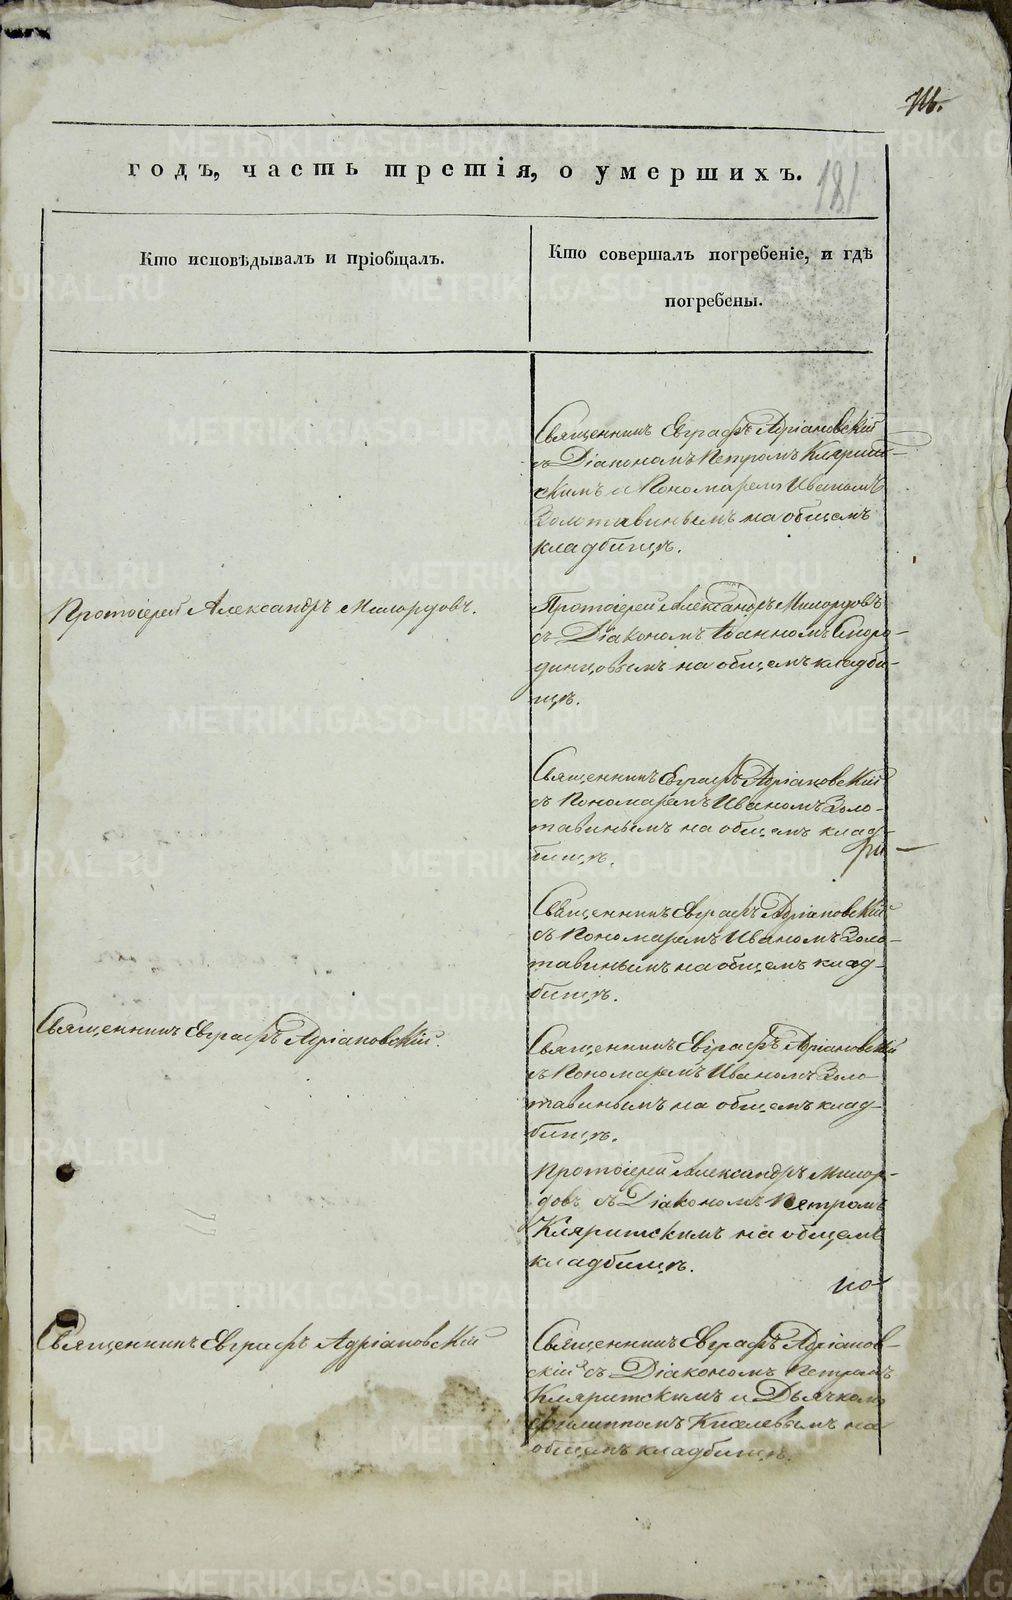 181
годъ, часть третія, о умершихъ.
Кто исповѣдывалъ и пріобщалъ.
Кто совершалъ погребеніе, и гдѣ
погребены.
Священникъ Евграфъ Адріановскій
съ Діакономъ Петромъ Клярит-
скимъ и Пономаремъ Иваномъ
Золотавинымъ на общемъ
кладбищѣ.
Протоіерей Александръ Милордовъ.
Протоіерей Александръ Милордовъ
съ Діакономъ Іоанномъ Сморо-
динцовымъ на общемъ кладби-
щѣ.
Священникъ Евграфъ Адріановскій
съ Пономаремъ Иваномъ Золо-
тавинымъ на общемъ клад-
бищѣ.
Священникъ Евграфъ Адріановскій
съ Пономаремъ Иваномъ Золо-
тавинымъ на общемъ клад-
бищѣ.
Священникъ Евграфъ Адріановскій.
Священникъ Евграфъ Адріановскій
съ Пономаремъ Иваномъ Золо
тавинымъ на общемъ клад-
бищѣ.
Протоіерей Александръ Милор-
довъ съ Діакономъ Петромъ
Кляритскимъ на общемъ
кладбищѣ.
но
Священникъ Евграфъ Адріановскій
Священникъ Евграфъ Адріанов-
скій съ Діакономъ Петромъ
Кляритскимъ и Дьячкомъ
Филиппомъ Киселевымъ на
общемъ кладбищѣ.
METRIKI.GASO-URAL.RU